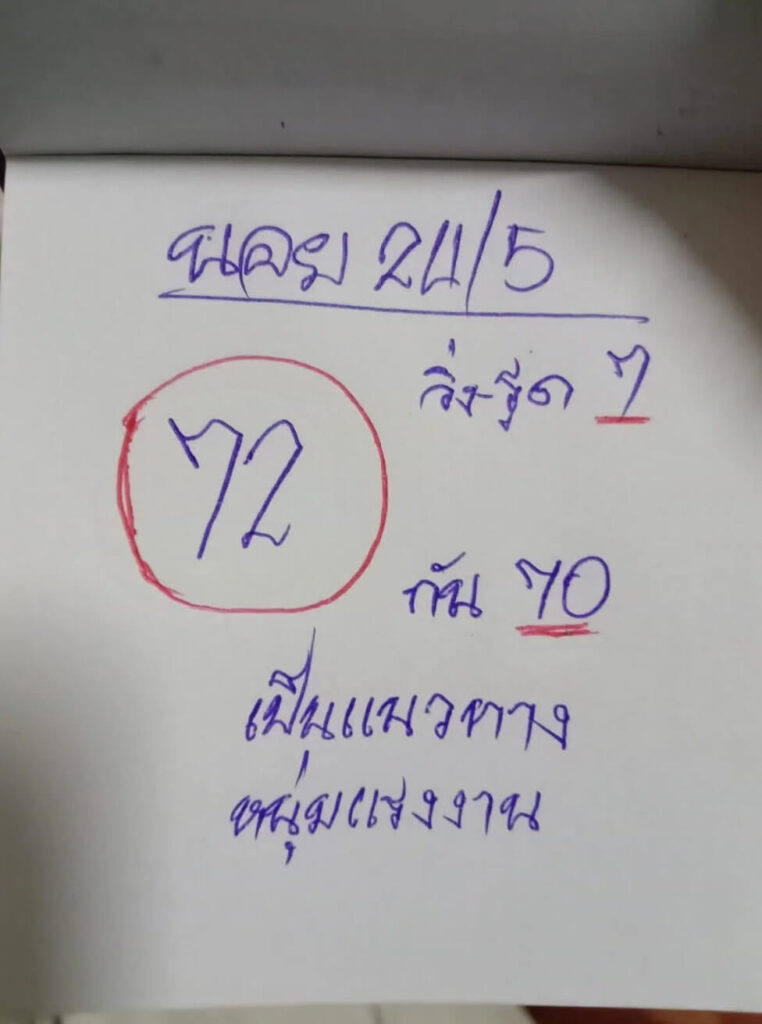 นอย 24/5
วิ่ง-รูด 7
72
กัน 70
เป็นแนวทาง
หนุ่มแรงงาน